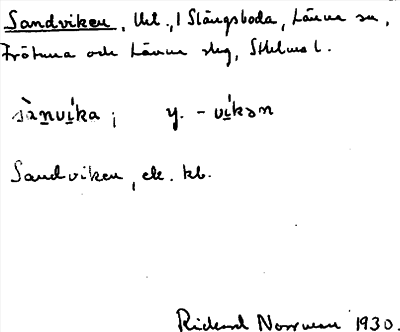 Sandviken, Utl., 1 Slängsboda, Länna sn,
Frötuna och Länna slg, Sthlms l.
sànvíka; y. -víkən
Sandviken, ek. kb.
Rickard Norrman 1930.